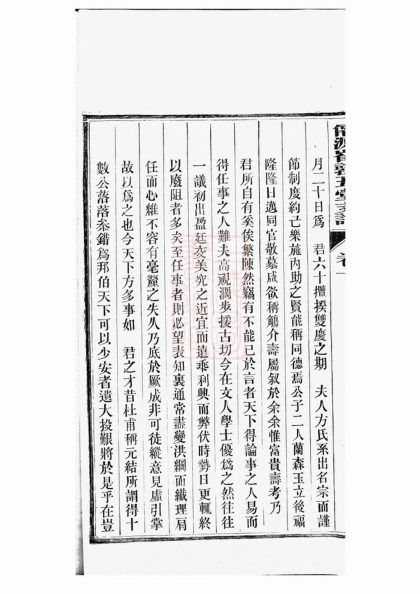 月二十日爲　君六十攬揆雙慶之期　夫人方氏系出名宗而謹
節制度約己樂施內助之賢能稱同德焉公子二人蘭森玉立後福
隆隆日邁同官敬慕咸欲稱觴介壽屬叙於余余惟富貴壽考乃
君所自有奚俟繁陳然竊有不能已於言者天下得論事之人易而
得任事之人難夫高視濶步援古切今在文人學士優爲之然往往
一議初出盈廷交美究之近宜而遠乖利興而弊伏時勢日更輒終
以廢阻者多矣至任事者則必望表知裏通常盡變洪綱而纖理肩
任而心維不容有毫釐之失乃底於厥成非可徒縱意見虛引掌
故以爲之也今天下方多事如　君之才昔杜甫稱元結所謂得十
數公落落叅錯爲邦伯天下可以少安者遺大投艱將於是乎在豈